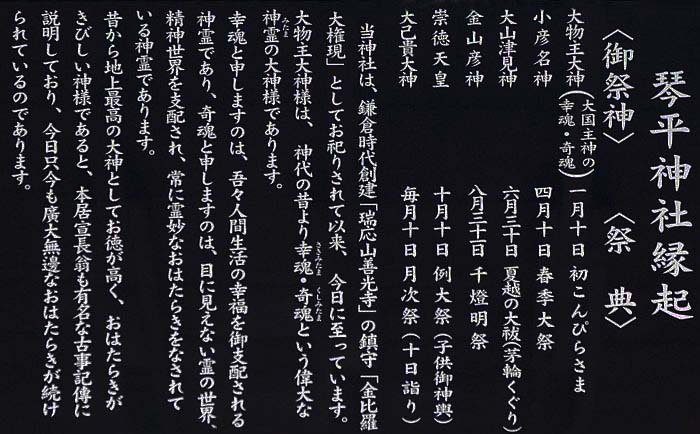 琴平神社縁起
〈御祭神〉　〈祭　典〉
大物主大神(大国主神の幸魂・奇魂)　一月十日　初こんぴらさま
少彦名神　四月十日　春季大祭
大山津見神　六月三十日　夏越の大祓(茅輪くぐり)
金山彦神　八月三十日　千燈明祭
崇徳天皇　十月十日　例大祭(子供御神輿)
大己貴大神　毎月十日　月次祭(十日詣り)
当神社は、鎌倉時代創建「瑞応山善光寺」の鎮守「金比羅
大権現」としてお祀りされて以来、今日に至っています。
大物主大神様は、神代の昔より幸魂(さきみたま)・奇魂(くしみたま)という偉大な
神霊(みたま)の大神様であります。
幸魂と申しますのは、吾々人間生活の幸福を御支配される
神霊であり、奇魂と申しますのは、目に見えない霊の世界、
精神世界を支配され、常に霊妙なおはたらきをなされて
いる神霊であります。
昔から地上最高の大神としてお徳が高く、おはたらきが
きびしい神様であると、本居宣長翁も有名な古事記傳に
説明しており、今日只今も廣大無邊なおはたらきが続け
られているのであります。